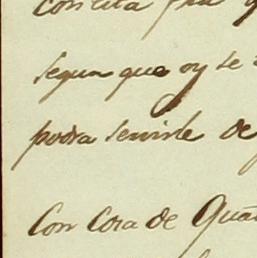 segun que oy se
podra servirle de
Con Cora de Quā